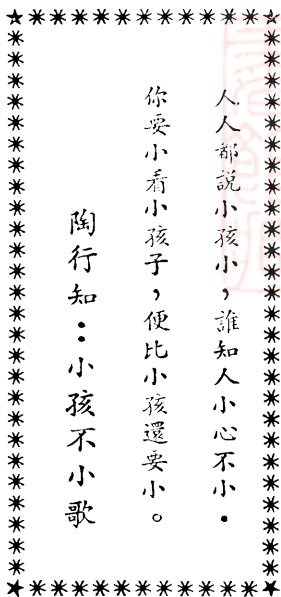 人人都說小孩小，誰知人小心不小．
你要小看小孩子，便比小孩還要小。
陶行知：小孩不小歌